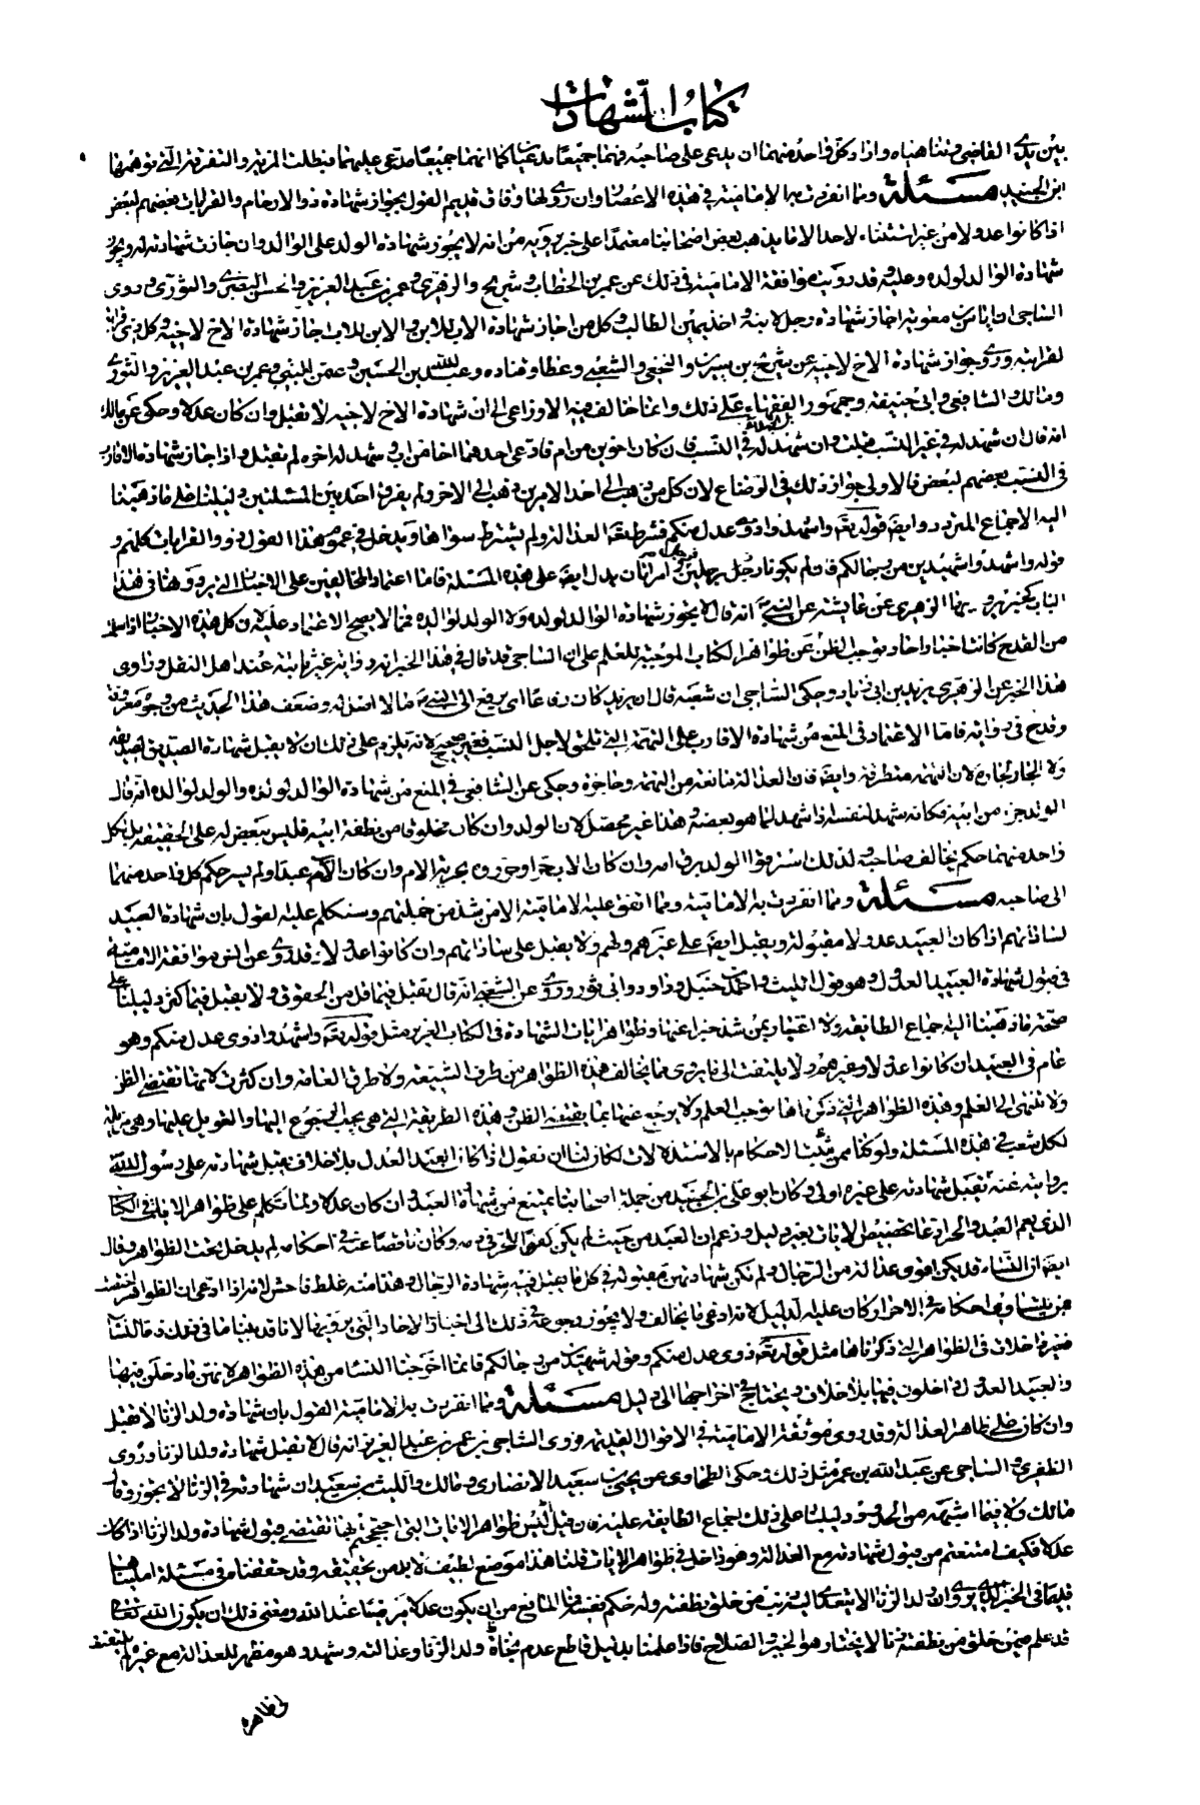 كتاب الشهادات
بين يدي القاضي وتناهياه واذا كان كل واحد منهما ان يدعى على صاحبه فهما جميعا مدعيان كما انهما جميعا مدعى عليهما فبطلت المزية والتفرقة التي توهمها
ابن الجنيد مسئلة ومما انفردت به الامامية في هذه الاعصار وان روي لها وفاق قديم القول بجواز شهادة ذوي الارحام والقرابات بعضهم لبعض
اذا كانوا عدولا من غير استثناء لاحد الا ما يذهب بعض اصحابنا معتمدا على خبر يرويه من انه لا يجوز شهادة الولد على الوالد وان جازت شهادته له ويجوز
شهادة الوالد لولده وعليه وقد رويت موافقة الامامية في ذلك عن عمر بن الخطاب وشريح والزهري وعمر بن عبد العزيز والحسن البصري والثوري وروى
الساجي ان اياس بن معوية اجاز شهادة رجل لابنه واخذ يمين الطالب وكل من اجاز شهادة الاب للابن والابن للاب اجاز شهادة الاخ لاخيه وكل ذي قرابة
لقرابته وروي جواز شهادة الاخ لاخيه عن شريح وابن سيرين والنخعي والشعبي وعطا وقتادة وعبد الله بن الحسن وعثمن البتي وعمر بن عبد العزيز والثوري
ومالك والشافعي وابي حنيفة وجمهور الفقهاء على ذلك وانما خالف فيه الاوزاعي الى ان شهادة الاخ لاخيه لا تقبل وان كان عدلا وحكى عن مالك
انه قال ان شهد له في غير النسب قبلت وان شهد له في النسب فان كان اخوين من ام فادعى احدهما اخا من اب وشهد له اخوه لم تقبل واذا جاز شهادة الاقارب
في النسب بعضهم لبعض فالاولى جواز ذلك في الرضاع لان كل من ذهب الى احد الامرين ذهب الى الاخر ولم يفرق احد بين المسئلتين دليلنا على ما ذهبنا
اليه الاجماع المتردد وايضا قوله تعالى واشهدوا ذوي عدل منكم فشرط تعالى العدالة ولم يشترط سواها ويدخل في عموم هذا القول ذوو القرابات كلهم و
قوله واستشهدوا شهيدين من رجالكم فان لم يكونا رجلين فرجل وامراتان يدل ايضا على هذه المسئلة فاما اعتماد المخالفين على الاخبار التي يروونها في هذا
الباب كخبر يرويه الزهري عن عايشة عن النبي انه قال لا يجوز شهادة الوالد لولده ولا الولد لوالده فمما لا يصح الاعتماد عليه لان كل هذه الاخبار اذا سلمت
من القدح كانت اخبار احاد توجب الظن عن ظواهر الكتاب الموجبة للعلم على ان الساجي قد قال في هذا الخبر انه رواية غير ثابتة عند اهل النقل وراوي
هذا الخبر عن الزهري يزيد بن ابي زياد وحكى الساجي ان شعبة قال ان يزيد كان رفاعا اي يرفع الى النبي ما لا اصل له وضعف هذا الحديث من وجوه معروفة
وقدح في رواته فاما الاعتماد في المنع من شهادة الاقارب على التهمة التي تلحق لاجل النسب فغير صحيح لانه يلزم على ذلك ان لا يقبل شهادة الصديق لصديقه
ولا الجار لجاره لان التهمة متطرقة وايضا فان العدالة مانعة من التهمة وحاجزة وحكى عن الشافعي في المنع من شهادة الوالد لولده والولد لوالده انه قال
الولد جزء من ابيه فكانه شهد لنفسه اذا شهد لما هو بعضه وهذا غير محصل لان الولد وان كان مخلوقا من نطفة ابيه فليس ببعض له على الحقيقة بل لكل
واحد منهما حكم يخالف صاحبه ولذلك استرقوا الولد برق امه وان كان الاب حرا وحرروه بحرية الام وان كان الاب عبدا ولم يسر حكم كل واحد منهما
الى صاحبه مسئلة ومما انفردت به الامامية ومما اتفق عليه الامامية الا من شذ من جملتهم وسنكلم عليه القول بان شهادة العبيد
لساداتهم اذا كان العبيد عدولا مقبولة وتقبل ايضا على غيرهم ولهم ولا يقبل على ساداتهم وان كانوا عدولا وقد روي عن انس موافقة الامامية
في قبول شهادة العبيد العدول وهو قول الليث واحمد بن حنبل وداود وابي ثور وروي عن الشعبي انه قال تقبل فيما قل من الحقوق ولا يقبل فيما كثر دليلنا على
صحة ما ذهبنا اليه اجماع الطايفة ولا اعتبار بمن شذ خيرا عنها وظواهر ايات الشهادة في الكتاب العزيز مثل قوله تعالى واشهدوا ذوي عدل منكم وهو
عام في العبيد ان كانوا عدولا وغيرهم ولا يلتفت الى ما يروى مما يخالف هذه الظواهر من طرق الشيعة ولا طرق العامة وان كثرت لانها تقتضي الظن
ولا تنتهي الى العلم وهذه الظواهر التي ذكرناها توجب العلم ولا يرجع عنها بما يقتضيه الظن وهذه الطريقة التي هي يجب الرجوع اليها والتعويل عليها وهي مزيلة
لكل شعب في هذه المسئلة ولو كنا ممن يثبت الاحكام بالاستدلالات لكان لنا ان نقول اذا كان العبد العدل بلا خلاف يقبل شهادته على رسول الله
بروايته عنه تقبل شهادته على غيره اولى وكان ابو علي بن الجنيد من جملة اصحابنا يمتنع من شهادة العبد وان كان عدلا ولما تكلم على ظواهر الايات في الكتاب
الذي يعم العبد والحر ادعا تخصيص الايات بغير دليل وزعم ان العبد من حيث لم يكن كفوا للحر في دمه وكان ناقصا عنه في احكامه لم يدخل تحت الظواهر وقال
ايضا ان النساء قد يكن اقوى عدالة من الرجال ولم تكن شهادتهن مقبولة في كل ما يقبل فيه شهادة الرجال وهذا منه غلط فاحش لانه اذا ادعى ان الظواهر اختصت
بمن يتساوى احكامه في الاحرار كان عليه الدليل لانه ادعى ما يخالف ولا يجوز رجوعه في ذلك الى اخبار الاحاد التي يرويها لانا قد بينا ما في ذلك فاما النساء
فغير داخلات في الظواهر التي ذكرناها مثل قوله تعالى ذوي عدل منكم وقوله شهيدين من رجالكم فانما اخرجنا النساء من هذه الظواهر لانهن ما دخلن فيها
والعبيد العدول داخلون فيها بلا خلاف ويحتاج في اخراجها الى دليل مسئلة ومما انفردت به الامامية القول بان شهادة ولد الزنا لا تقبل
وان كان على ظاهر العدالة وقد روي موافقة الامامية في الاقوال القديمة وروى الساجي عن عمر بن عبد العزيز انه قال لا تقبل شهادة ولد الزنا وروى
الطبري والساجي عن عبد الله بن عمر مثل ذلك وحكى الطحاوي عن يحيى بن سعيد الانصاري ومالك والليث بن سعد ان شهادته في الزنا لا يجوز وقال
مالك ولا فيما اشبهه من الحدود دليلنا على ذلك اجماع الطايفة عليه فان قيل اليس ظواهر الايات التي احتججتم بها تقتضي قبول شهادة ولد الزنا اذا كان
عدلا فكيف امتنعتم من قبول شهادته مع العدالة وهو داخل في ظواهر الايات قلنا هذا موضع لطيف لابد من تحقيقه وقد حققناه في مسئلة امليناها
قديما في الخبر الذي يروى ان ولد الزنا لا ينجب ان من خلق من نطفة وله حكم نفسه فما المانع من ان يكون عدلا مرضيا عند الله ومعنى ذلك ان يكون الله تعالى
قد علم فيمن خلق من نطفة زنا ان لا يختار هو الخير والصلاح فاذا علمنا بدليل قاطع عدم نجابة ولد الزنا وعدالته وشهد وهو مظهر للعدالة مع غيره لم يلتفت
الى ظاهره